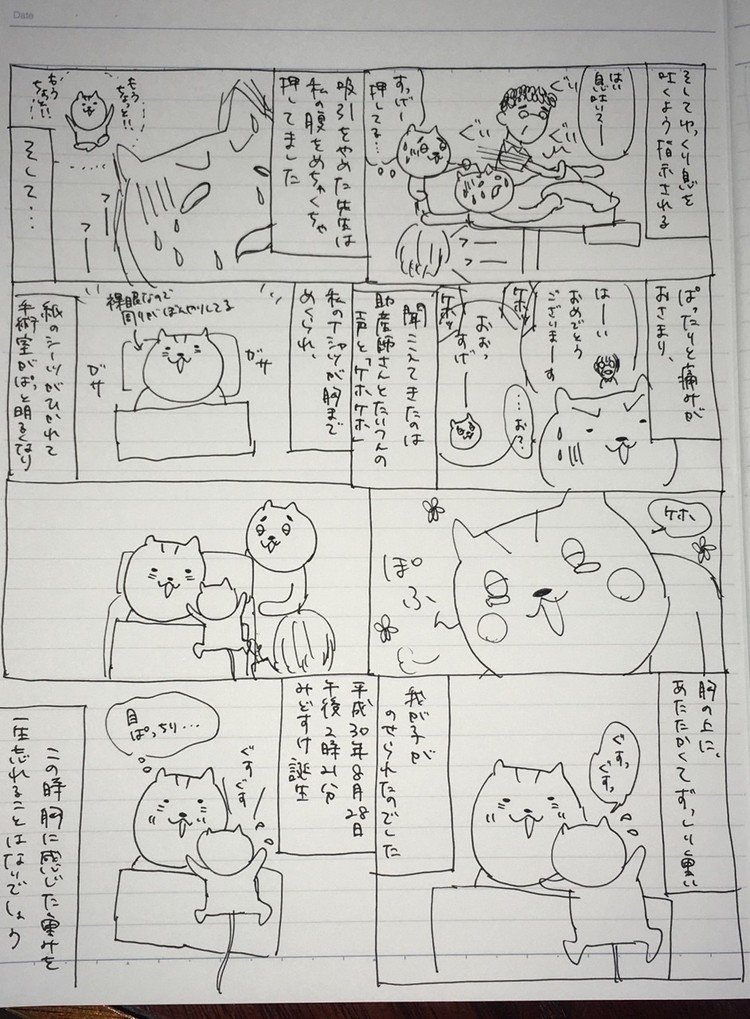 Date
そしてゆっくり息を
吐くよう指示される
はい
息吐いてー
ぐい
ぐい
ぐい
すっげー
押してる…
フー
フー
吸引をやめた先生は
私の腹をめちゃくちゃ
押してました
もう
ちょっと!!
もう
ちょっと!!
フー
フー
そして…
ぱったりと痛みが
おさまり、
はーい
おめでとう
ございまーす
ケホッ
ケホッ
おおっ
すげー
…お?
聞こえてきたのは
助産師さんとたいつんの
声と「ケホケホ」
私のTシャツが胸まで
めくられ、
裸眼なので
周りがぼんやりしてる
ガサ
ガサ
紙のシーツがひかれて
手術室がぱっと明るくなり
ケホ、
ぽ
ふ
ん
胸の上に、
あたたかくてずっしり重い
ぐすっ
ぐすっ
我が子が
のせられたのでした
平成30年8月28日
午後2時21分
みどすけ誕生
目
ぱっちり…
ぐす
ぐす
この時胸に感じた重みを
一生忘れることはないでしょう